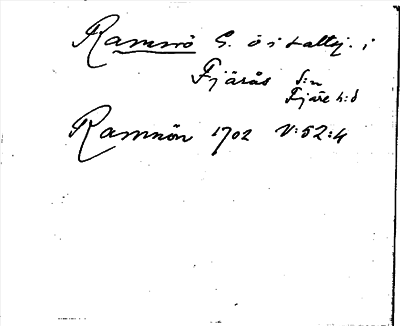 Ramnö G. ö i Lalltj. i
Fjärås s:n
Fjäre h:d
Ramnön 1702 V:52:4